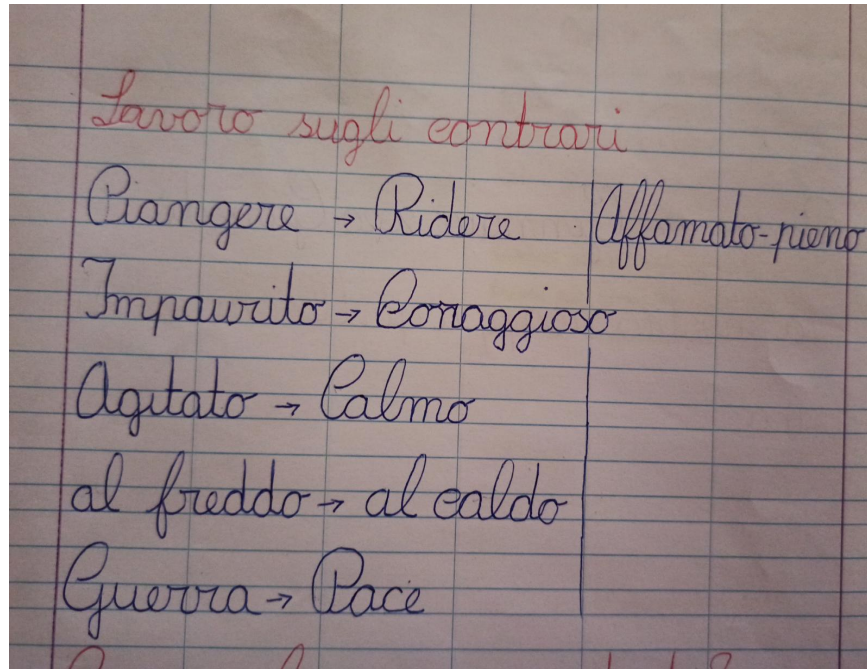 Lavoro sugli contrari
Piangere → Ridere
Impaurito → Coraggioso
Agitato → Calmo
al freddo → al caldo
Guerra → Pace
Affamato - pieno